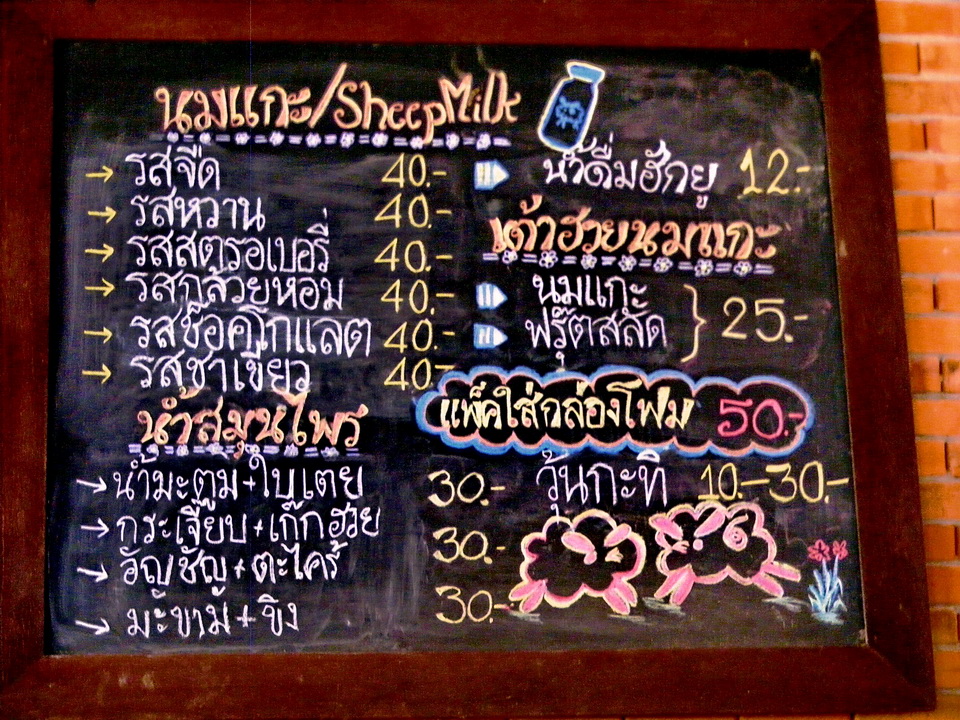 นมแกะ/SheepMilk
→ รสจืด 40.-
→ รสหวาน 40.-
→ รสสตรอเบอรี่ 40.-
→ รสกล้วยหอม 40.-
→ รสช็อคโกแลต 40.-
→ รสชาเขียว 40.-
น้ำสมุนไพร
→ น้ำมะตูม+ใบเตย 30.-
→ กระเจี๊ยบ+เก๊กฮวย 30.-
→ อัญชัญ+ตะไคร้
→ มะขาม+ขิง 30.-
น้ำดื่มฮักยู 12.-
เต้าฮวยนมแกะ
นมแกะ
ฟรุ๊ตสลัด } 25.-
แพ็คใส่กล่องโฟม 50.-
วุ้นกะทิ 10.-30.-